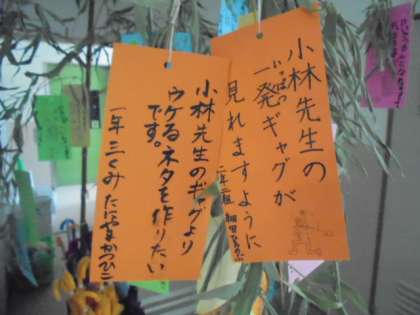 小林先生の
いっぱつ
一発ギャグが
見れますように
小林先生のギャグより
ウケるネタを作りたい
です。
一年 三くみ たにやまかつひこ